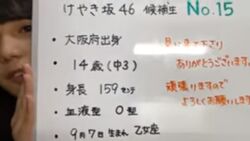 けやき坂46 候補生 No.15
・大阪府出身
・14歳(中3)
・身長 159センチ
・血液型 O型
・9月7日生まれ 乙女座
下さり
ありがとうございます。
頑張りますので
よろしくお願い